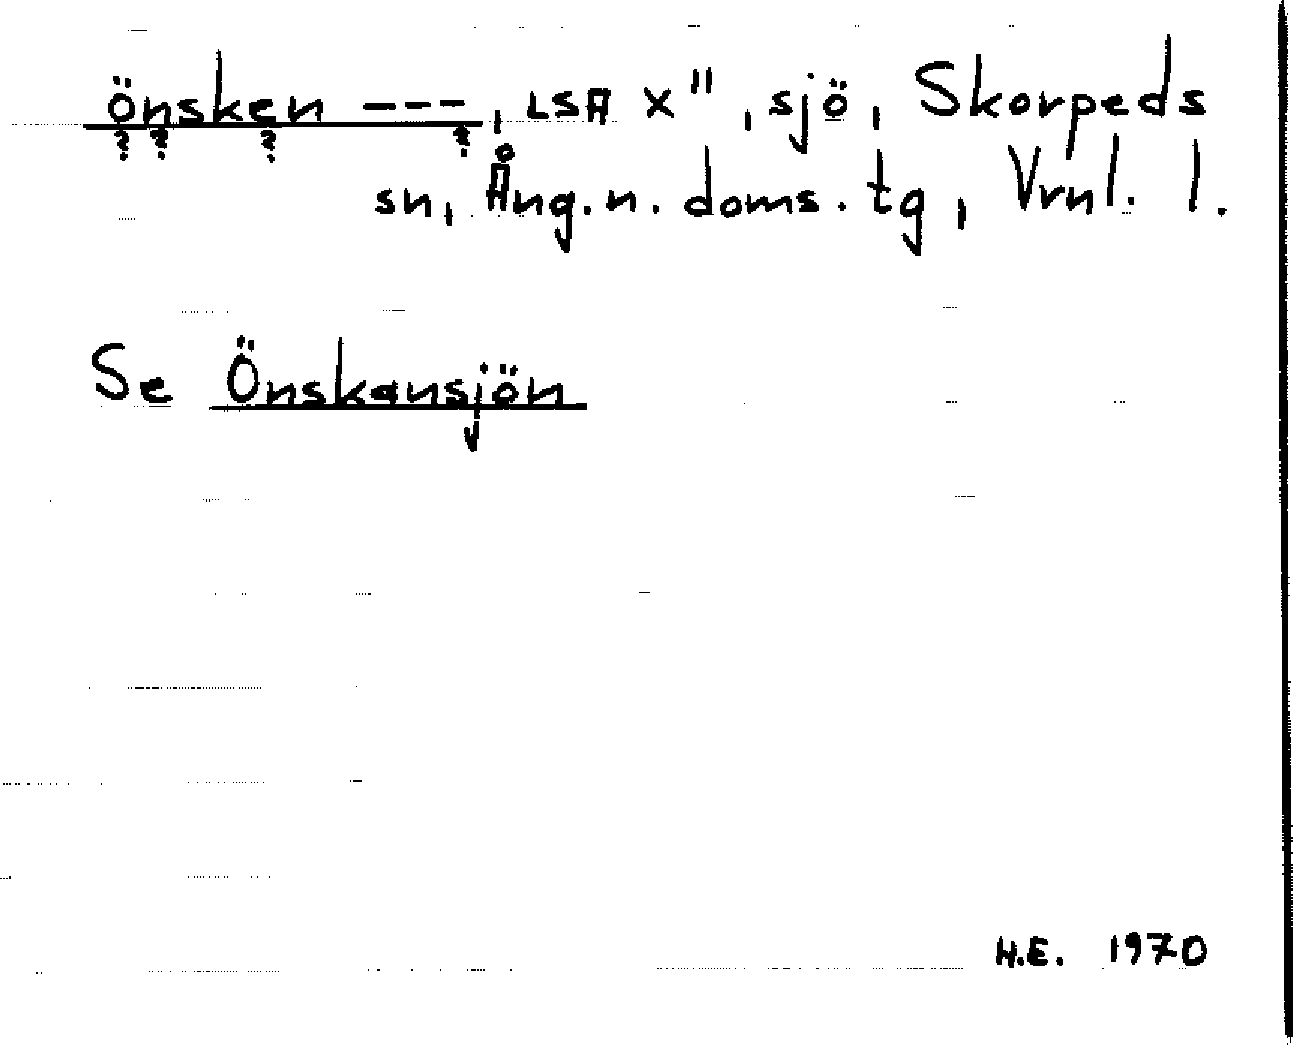 önsken ---, LSA X", sjö, Skorpeds
? ? ? ?
sn, Ång.n.doms.tg, Vrnl. l.
Se Önskansjön
H.E. 1970